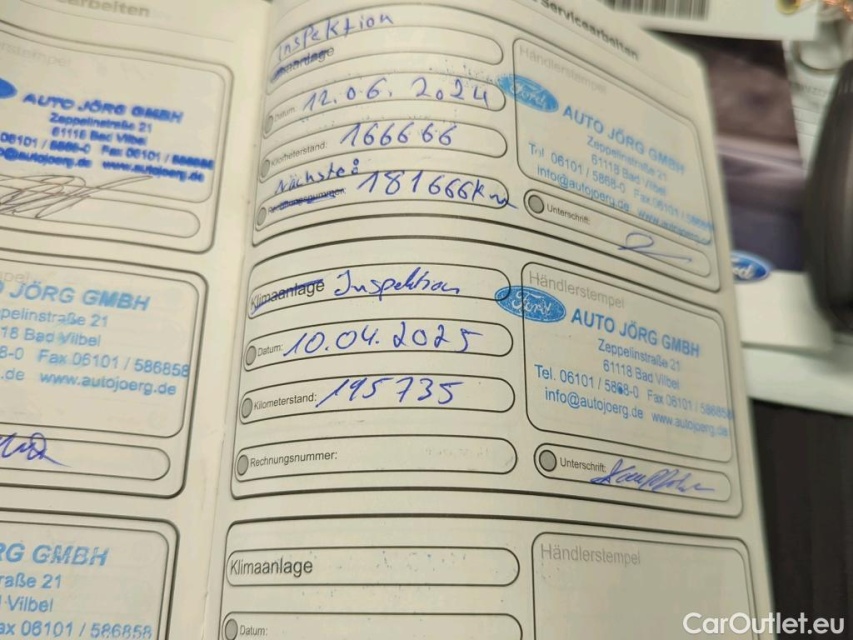 arbeiten
AUTO JÖRG GMBH
Zeppelinstraße 21
61118 Bad Vilbel
06101 / 5868-0 Fax 06101 / 586858
@autojoerg.de
JÖRG GMBH
pelinstraße 21
18 Bad Vilbel
8-0 Fax 06101 / 586858
.de www.autojoerg.de
RG GMBH
raße 21
Vilbel
ax 06101 / 586858
Servicearbeiten
Inspektion
Datum: 12.06.2024
Kilometerstand: 166666
Nächste: 181666km
Händlerstempel
Ford
AUTO JÖRG GMBH
Zeppelinstraße 21
61118 Bad Vilbel
Tel. 06101 / 5868-0 Fax 06101 / 5868
info@autojoerg.de www.autojoerg
Unterschrift:
Klimaanlage Inspektion
Datum: 10.04.2025
Kilometerstand: 195735
Rechnungsnummer:
Händlerstempel
Ford
AUTO JÖRG GMBH
Zeppelinstraße 21
61118 Bad Vilbel
Tel. 06101 / 5868-0 Fax 06101 / 586858
info@autojoerg.de www.autojoerg.de
Unterschrift:
Klimaanlage
Datum:
Händlerstempel
Ford
CarOutlet.eu